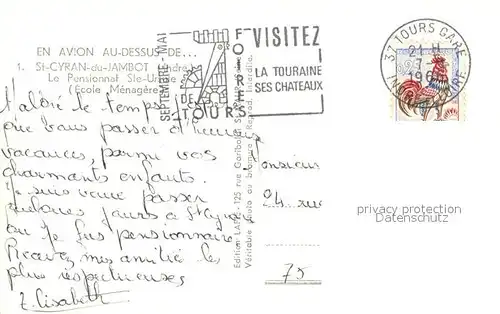 EN AVION AU-DESSUS DE...
1. St-CYRAN-du-JAMBOT (Indre)
Le Pensionnat Ste-
(École Ménagère)
SEPTEMBRE - MAI
FOIRES
DE
TOURS
VISITEZ
LA TOURAINE
SES CHATEAUX
37 TOURS GARE
21 H
INDRE ET LOIRE
le temps
que vous passer d'heureuses
vacances, parmi vos
charmants enfants.
Je suis venue passer
quelques jours à St Cyran
où je fus pensionnaire.
Recevez mes amitiés les
plus respectueuses
Elisabeth
Edition LAPIE, 125 rue Garibaldi, St-MAUR
Véritable photo au bromure - Reprod. Interdite.
Monsieur
24 rue
75
privacy protection
Datenschutz